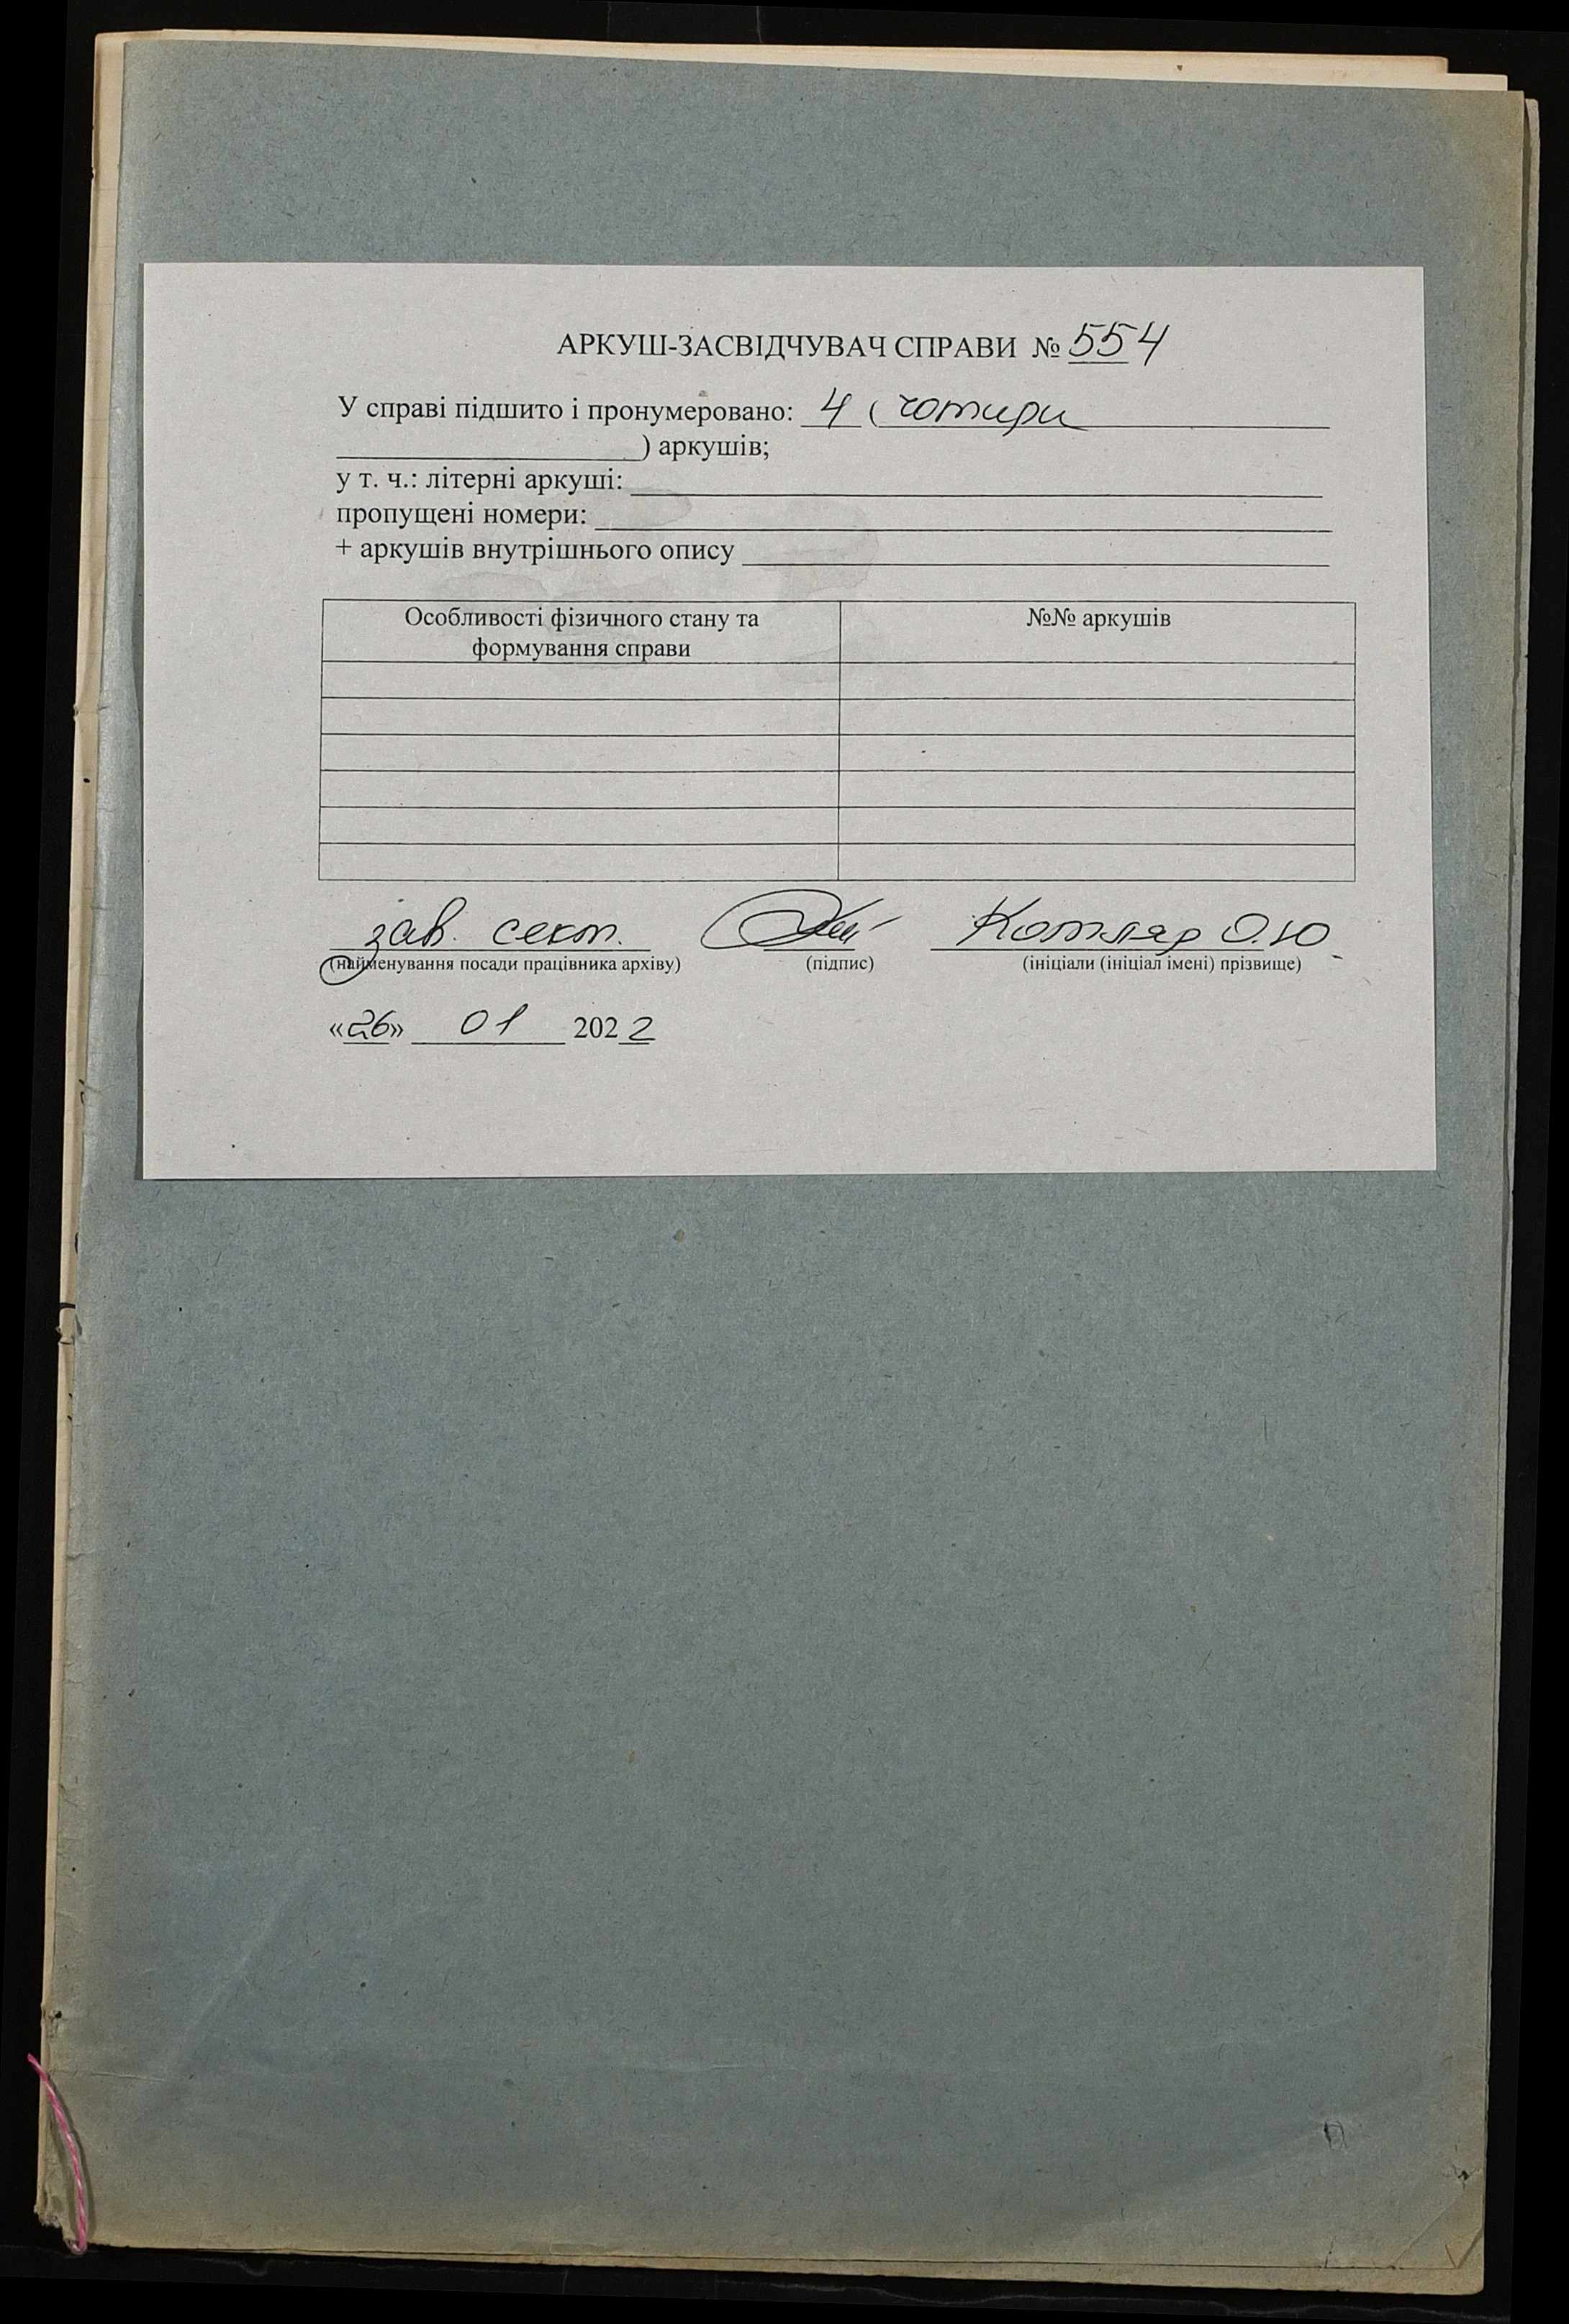 АРКУШ-ЗАСВІДЧУВАЧ СПРАВИ № 554
У справі підшито і пронумеровано: 4 ( чотири
) аркушів;
у т. ч.: літерні аркуші:
пропущені номери:
+ аркушів внутрішнього опису
Особливості фізичного стану та №№ аркушів
формування справи
зав. сект. Котляр О.Ю.
(найменування посади працівника архіву) (підпис) (ініціали (ініціал імені) прізвище)
«26» 01 2022